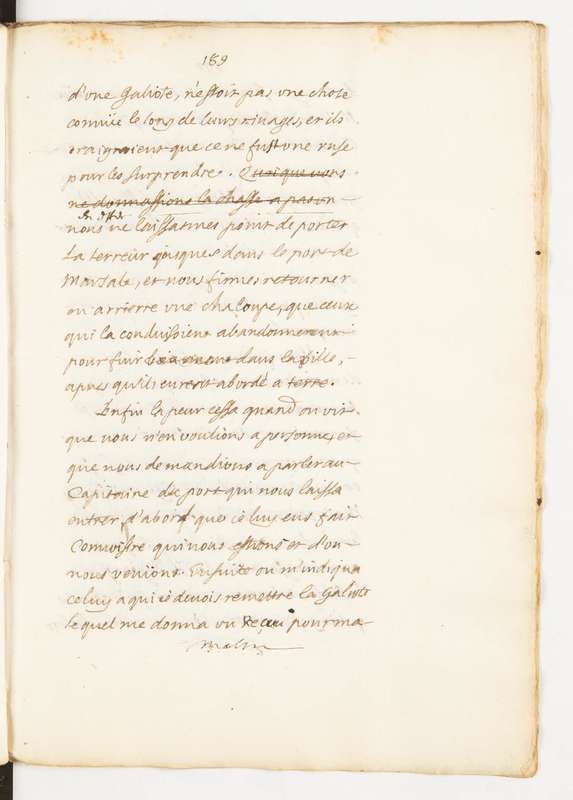 189
d'une Galiote, n'estoit pas une chose
connüe le long de leurs rivages, et ils
craignoient que ce ne fust une ruse
pour les surprendre. Quoique nous
ne donnassions la chasse a pason
nous ne laissasmes point de porter
La terreur jusques dans le port de
Marsale, et nous fismes retourner
en arrierre une chaloupe, que ceux
qui la conduisoient abandonnerent
pour fuir dans la ville,
apres qu'ils eurent abordé a terre.
Enfin la peur cessa quand on vit
que nous n'en voulions a personne, et
que nous demandions a parler au
Capitaine du port qui nous laissa
entrer d'abord que ie luy eus fait
Connoistre qui nous estions et d'ou
nous venions. Ensuite on m'indiqua
celuy a qui ie devois remettre la Galiote
lequel me donna un Reçeu pour ma